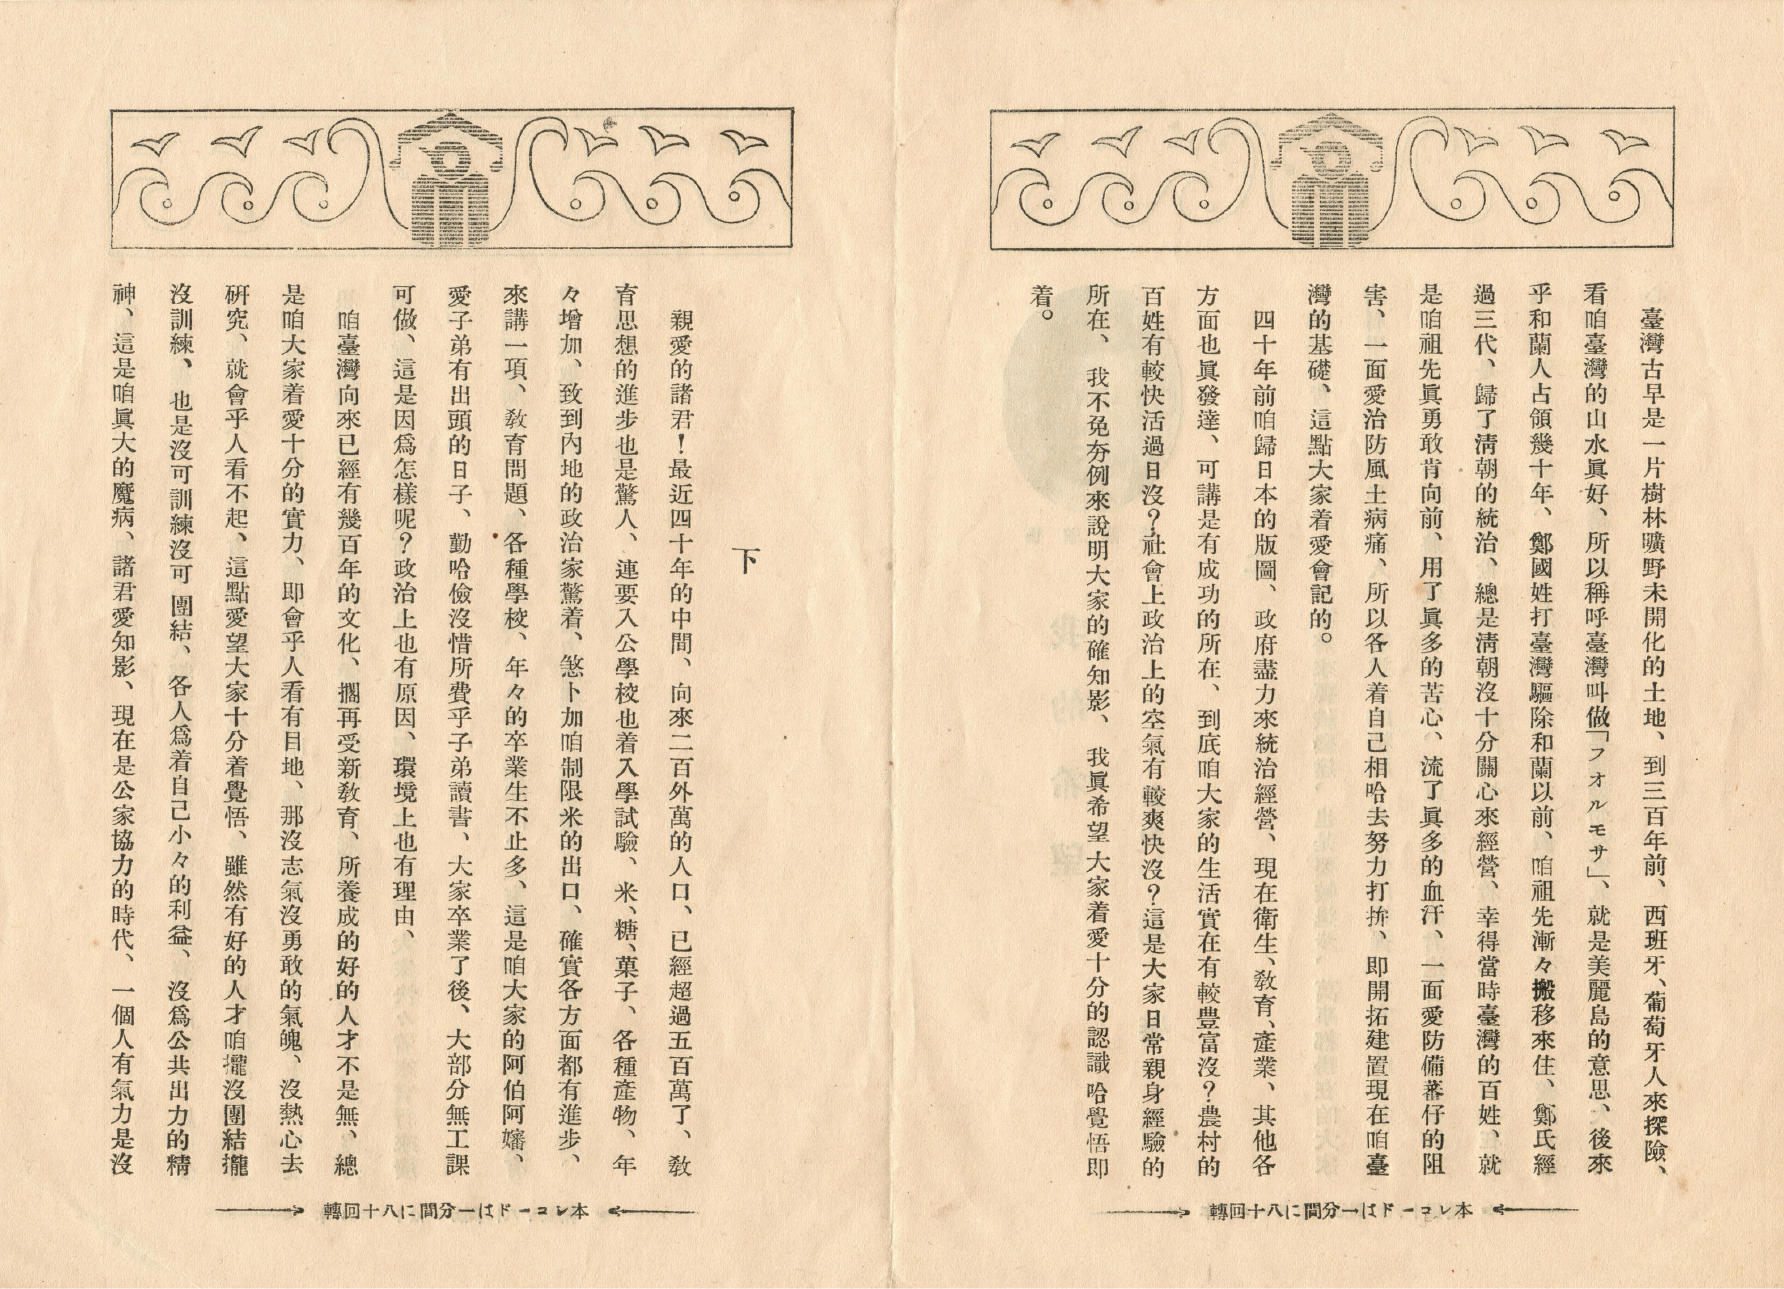 臺灣古早是一片樹林曠野未開化的土地、到三百年前、西班牙、葡萄牙人來探險、
看咱臺灣的山水眞好、所以稱呼臺灣叫做「フオルモサ」、就是美麗島的意思、後來
乎和蘭人占領幾十年、鄭國姓打臺灣驅除和蘭以前、咱祖先漸々搬移來住、鄭氏經
過三代、歸了淸朝的統治、總是淸朝沒十分關心來經營、幸得當時臺灣的百姓、就
是咱祖先眞勇敢肯向前、用了眞多的苦心、流了眞多的血汗、一面愛防備蕃仔的阻
害、一面愛治防風土病痛、所以各人着自己相哈去努力打拚、即開拓建置現在咱臺
灣的基礎、這點大家着愛會記的。
四十年前咱歸日本的版圖、政府盡力來統治經營、現在衛生、敎育、產業、其他各
方面也眞發達、可講是有成功的所在、到底咱大家的生活實在有較豊富沒？農村的
百姓有較快活過日沒？社會上政治上的空氣有較爽快沒？這是大家日常親身經驗的
所在、我不免夯例來說明大家的確知影、我眞希望大家着愛十分的認識哈覺悟即
着。
本レコードは一分間に八十回轉
下
親愛的諸君！最近四十年的中間、向來二百外萬的人口、已經超過五百萬了、敎
育思想的進步也是驚人、連要入公學校也着入學試驗、米、糖、菓子、各種產物、年
々增加、致到內地的政治家驚着、煞卜加咱制限米的出口、確實各方面都有進步、
來講一項、敎育問題、各種學校、年々的卒業生不止多、這是咱大家的阿伯阿嬸、
愛子弟有出頭的日子、勤哈儉沒惜所費乎子弟讀書、大家卒業了後、大部分無工課
可做、這是因爲怎樣呢？政治上也有原因、環境上也有理由、
咱臺灣向來已經有幾百年的文化、擱再受新敎育、所養成的好的人才不是無、總
是咱大家着愛十分的實力、即會乎人看有目地、那沒志氣沒勇敢的氣魄、沒熱心去
硏究、就會乎人看不起、這點愛望大家十分着覺悟、雖然有好的人才咱攏沒團結攏
沒訓練、也是沒可訓練沒可團結、各人爲着自己小々的利益、沒爲公共出力的精
神、這是咱眞大的魔病、諸君愛知影、現在是公家協力的時代、一個人有氣力是沒
本レコードは一分間に八十回轉